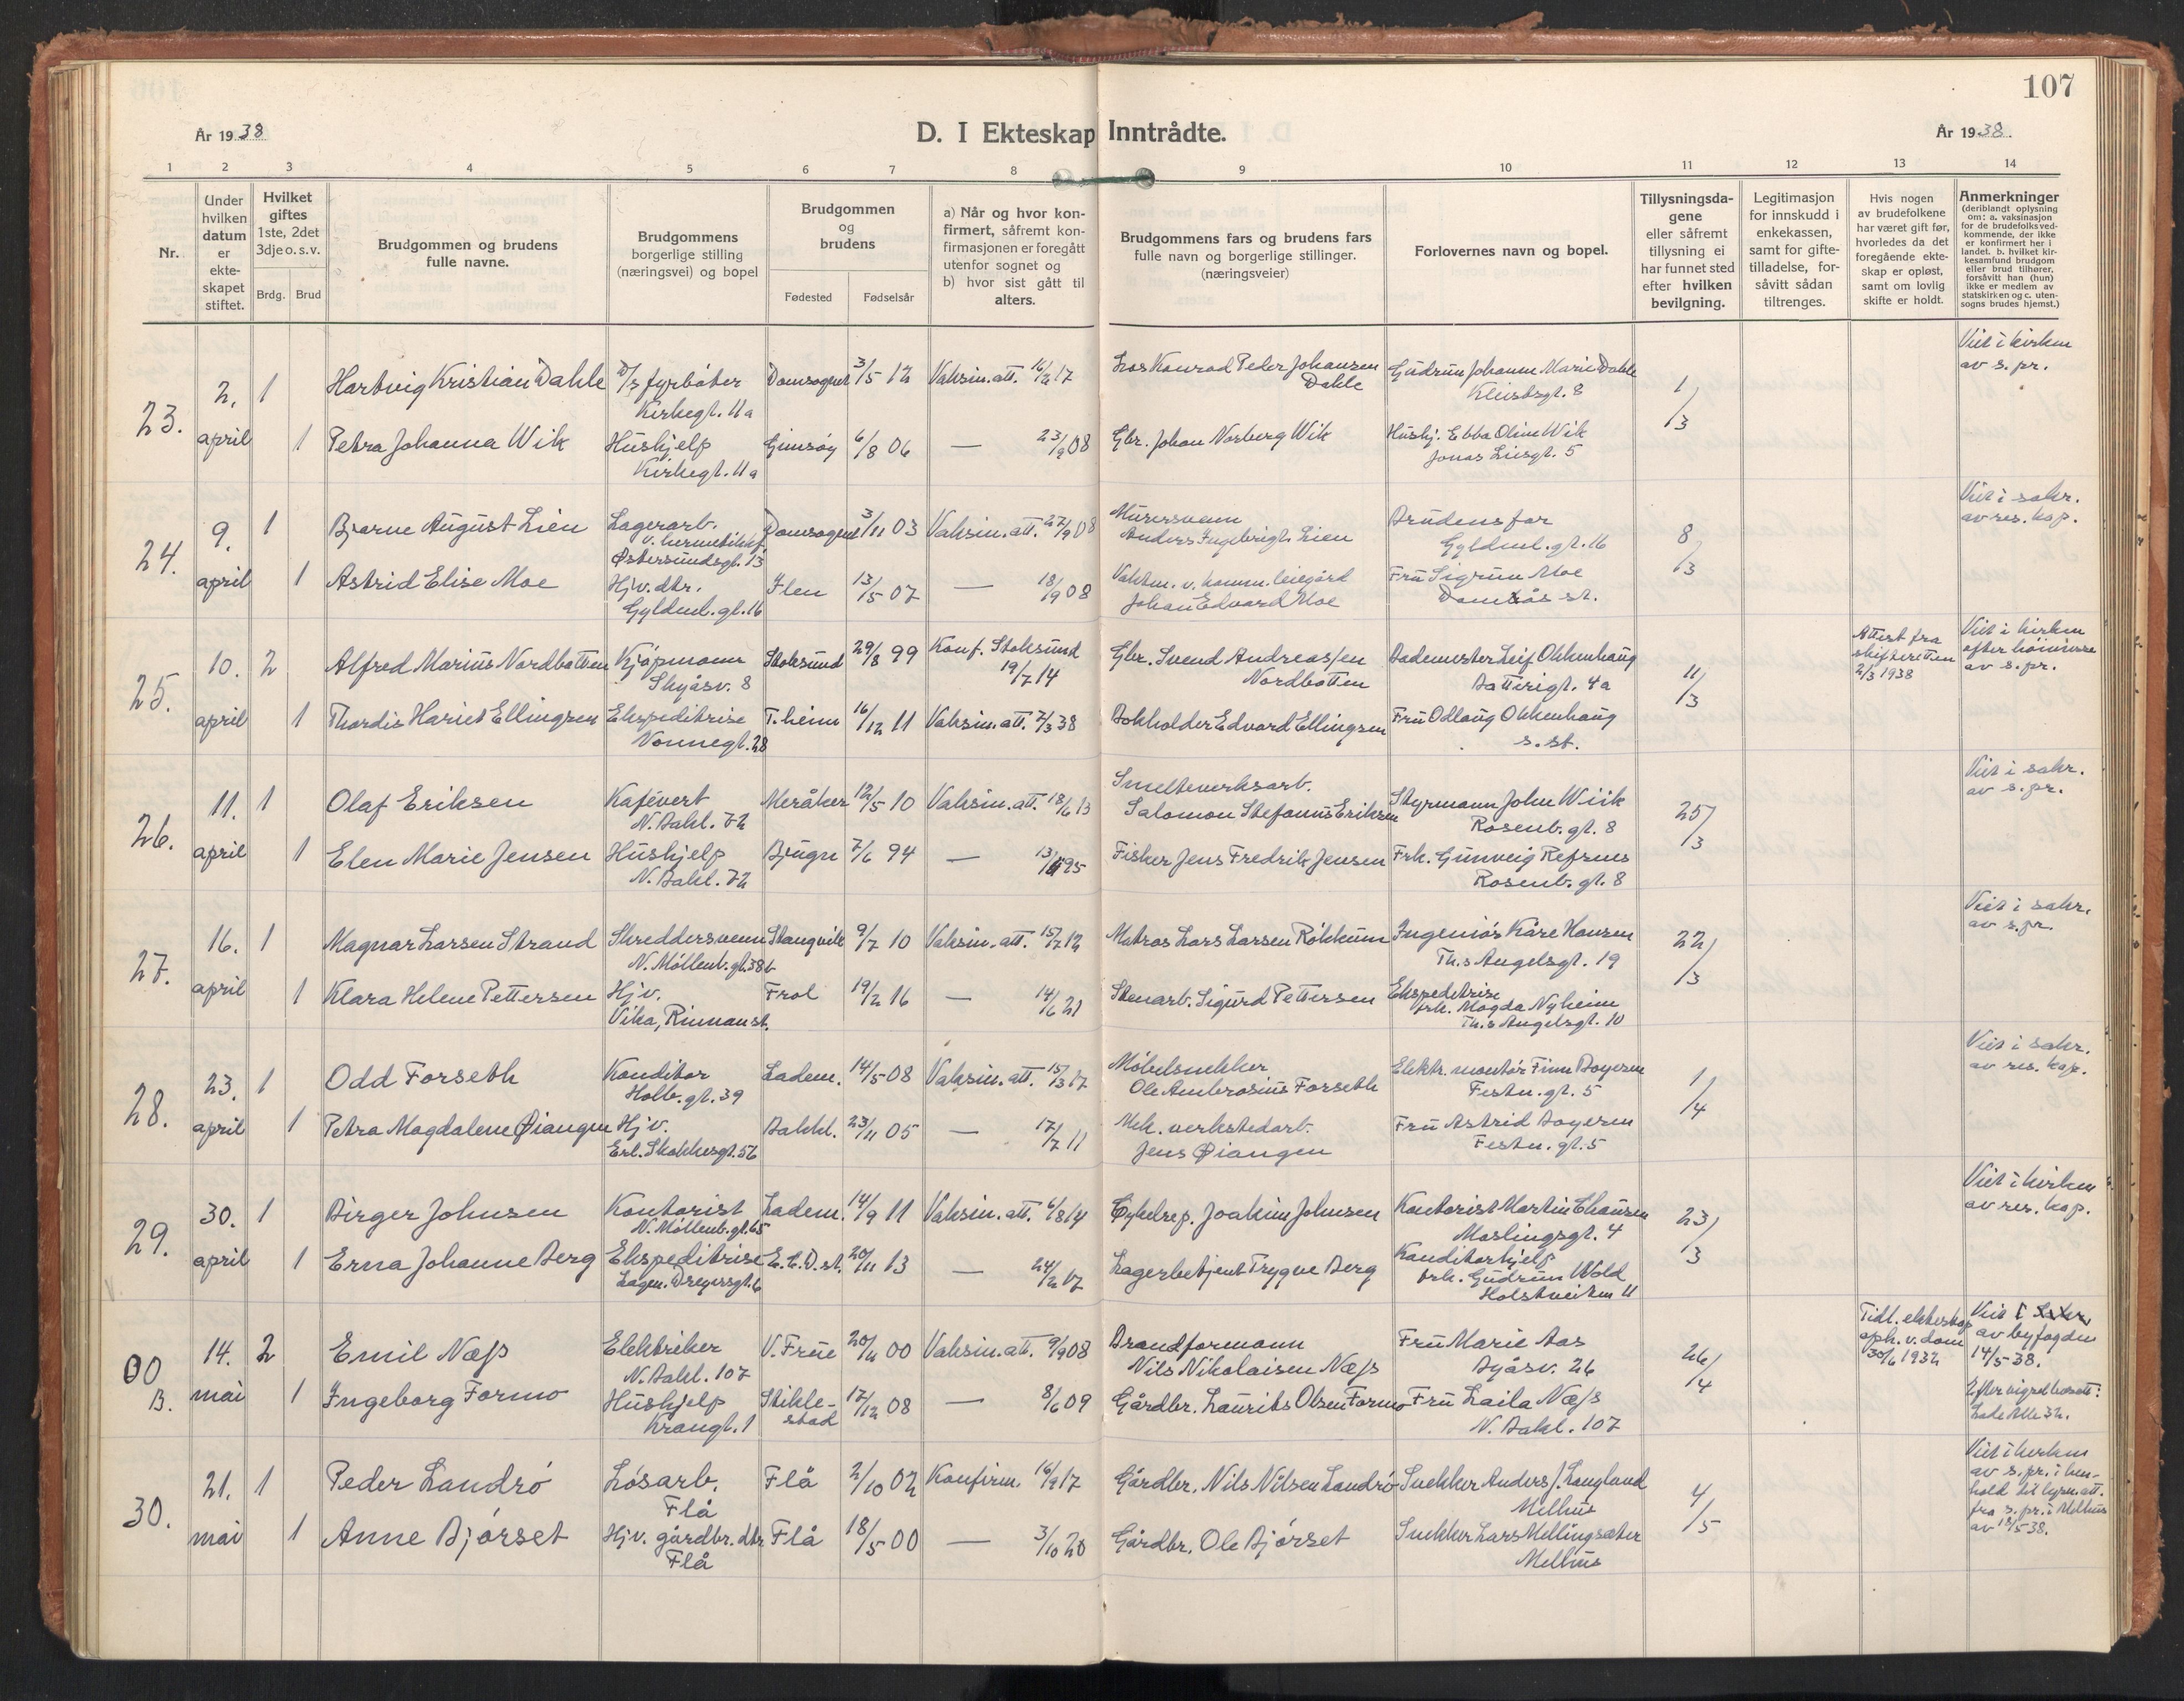 107
År 1938
D. I Ekteskap Inntrådte.
År 1938.
1 2 3 4 5 6 7 8 9 10 11 12 13 14
Nr.
Under hvilken datum er ekte-skapet stiftet.
Hvilket giftes 1ste, 2det 3dje o. s. v.
Brdg. Brud
Brudgommen og brudens fulle navne.
Brudgommens borgerlige stilling (næringsvei) og bopel
Brudgommen og brudens
Fødested Fødselsår
a) Når og hvor kon-firmert, såfremt kon-firmasjonen er foregått utenfor sognet og b) hvor sist gått til alters.
Brudgommens fars og brudens fars fulle navn og borgerlige stillinger. (næringsveier)
Forlovernes navn og bopel.
Tillysningsda-gene eller såfremt tillysning ei har funnet sted efter hvilken bevilgning.
Legitimasjon for innskudd i enkekassen, samt for gifte-tilladelse, for-såvitt sådan tiltrenges.
Hvis nogen av brudefolkene har været gift før, hvorledes da det foregående ekte-skap er opløst, samt om lovlig skifte er holdt.
Anmerkninger (deriblandt oplysning om: a. vaksinasjon for de brudefolks ved-kommende, der ikke er konfirmert her i landet. b. hvilket kir-kesamfund brudgom eller brud tilhører, forsåvitt han (hun) ikke er medlem av statskirken og c. uten-sogns brudes hjemst.)
23. 2. april
1 Hartvig Kristian Dahle fyrbøter Kirkegt. 11a Domsognet 3/5 12 Vaksin. att. 16/2 17
Los Konrad Peder Johansen Dahle
Gudrun Johanne Marie Dahle Kleistsgt. 8
1/3
Viet i kirken av s. pr.
1 Petra Johanna Wik Hushjelp Kirkegt. 11a Gimsøy 6/8 06 — 23/9 08
Gbr. Johan Norberg Wik
Hushj. Ebba Oline Wik Jonas Liesgt. 5
24. 9. april
1 Bjarne August Lien Lagerarb. v. hermetikkf. Østersundsgt. 13 Domsognet 3/11 03 Vaksin. att. 27/9 08
Murersvenn Anders Ingebrigt. Lien
Brudens far Gyldenl. gt. 16
8/3
Viet i sakr. av res. kap.
1 Astrid Elise Moe Hjv. dtr. Gyldenl. gt. 16 Ilen 13/5 07 — 18/9 08
Vaktm. v. komm. leiegård Johan Edvard Moe
Fru Sigrun Moe Dombås st.
25. 10. april
2 Alfred Marius Nordbotten Kjøpmann Skyåsv. 8 Stoksund 29/8 99 Konf. Stoksund 19/7 14
Gbr. Svend Andreassen Nordbotten
Bademester Leif Okkenhaug Batterigt. 4a
11/3
Attest fra skifteretten 2/3 1938
Viet i kirken efter høimesse av s. pr.
1 Thordis Hariet Ellingsen Ekspeditrise Nonnegt. 28 T.heim 16/12 11 Vaksin. att. 7/3 38
Bokholder Edvard Ellingsen
Fru Odlaug Okkenhaug s. st.
26. 11. april
1 Olaf Eriksen Kafévert N. Bakl. 72 Meråker 12/5 10 Vaksin. att. 18/6 13
Smelteverksarb. Salomon Stefanus Eriksen
Styrmann John Wiik Rosenb. gt. 8
25/3
Viet i sakr. av s. pr.
1 Elen Marie Jensen Hushjelp N. Bakl. 72 Bjugn 7/6 94 — 95
Fisker Jens Fredrik Jensen
Frk. Gunveig Refsnes Rosenb. gt. 8
27. 16. april
1 Magnar Larsen Strand Skreddersvenn N. Møllenb. gt. 38b Stangvik 9/7 10 Vaksin. att. 15/7 12
Matros Lars Larsen Røkkum
Ingeniør Kåre Hansen Th.s Angelsgt. 19
22/3
Viet i sakr. av s. pr.
1 Klara Helene Pettersen Hjv. Vika, Rinnan st. Frol 19/2 16 — 14/6 21
Stenarb. Sigurd Pettersen
Ekspeditrise frk. Magda Nyheim Th.s Angelsgt. 10
28. 23. april
1 Odd Forseth Konditor Holb. gt. 39 Ladem. 14/5 08 Vaksin. att. 15/3 17
Møbelsnekker Ole Ambrosius Forseth
Elektr. montør Finn Boyesen Festn. gt. 5
1/4
Viet i sakr. av res. kap.
1 Petra Magdalene Øiangen Hjv. Erl. Skakkesgt. 56 Bakkl. 23/11 05 — 17/7 11
Mek. verkstedarb. Jens Øiangen
Fru Astrid Boyesen Festn. gt. 5
29. 30. april
1 Birger Johnsen Kontorist N. Møllenb. gt. 65 Ladem. 14/9 11 Vaksin. att. 6/8 14
Sykelrep. Joakim Johnsen
Kontorist Martin Clausen Maslingsgt. 4
23/3
Viet i kirken av res. kap.
1 Erna Johanne Berg Ekspeditrise Lagm. Dreyersgt. 6 E. C. D. st. 20/11 13 — 24/2 17
Lagerbetjent Trygve Berg
Konditorhjelp frk. Gudrun Wold Holstveiten 11
00 B. 14. mai
2 Emil Næss Elektriker N. Bakl. 107 V. Frue 00 Vaksin. att. 9/9 08
Brandformann Nils Nikolaisen Næss
Fru Marie Aas Byåsv. 26
26/4
Tidl. ekteskap oph. v. dom 30/6 1932
Viet av byfogden 14/5-38. Efter vigsel bosatt: Lade Alle 32.
1 Ingeborg Formo Hushjelp Krangt. 1 Stikle-stad 17/12 08 — 8/6 09
Gårdbr. Laurits Olsen Formo
Fru Laila Næss N. Bakl. 107
30. 21. mai
1 Peder Landrø Løsarb. Flå Flå 2/10 02 Konfirm. 16/9 17
Gårdbr. Nils Nilsen Landrø
Snekker Anders J. Langland Melhus
4/5
Viet i kirken av s. pr. i hen-hold til lysn. att. fra s. pr. i Melhus av 18/5 38.
1 Anne Bjørset Hjv. gårdbr. dtr. Flå Flå 18/5 00 — 3/10 20
Gårdbr. Ole Bjørset
Snekker Lars Mellingsæter Melhus